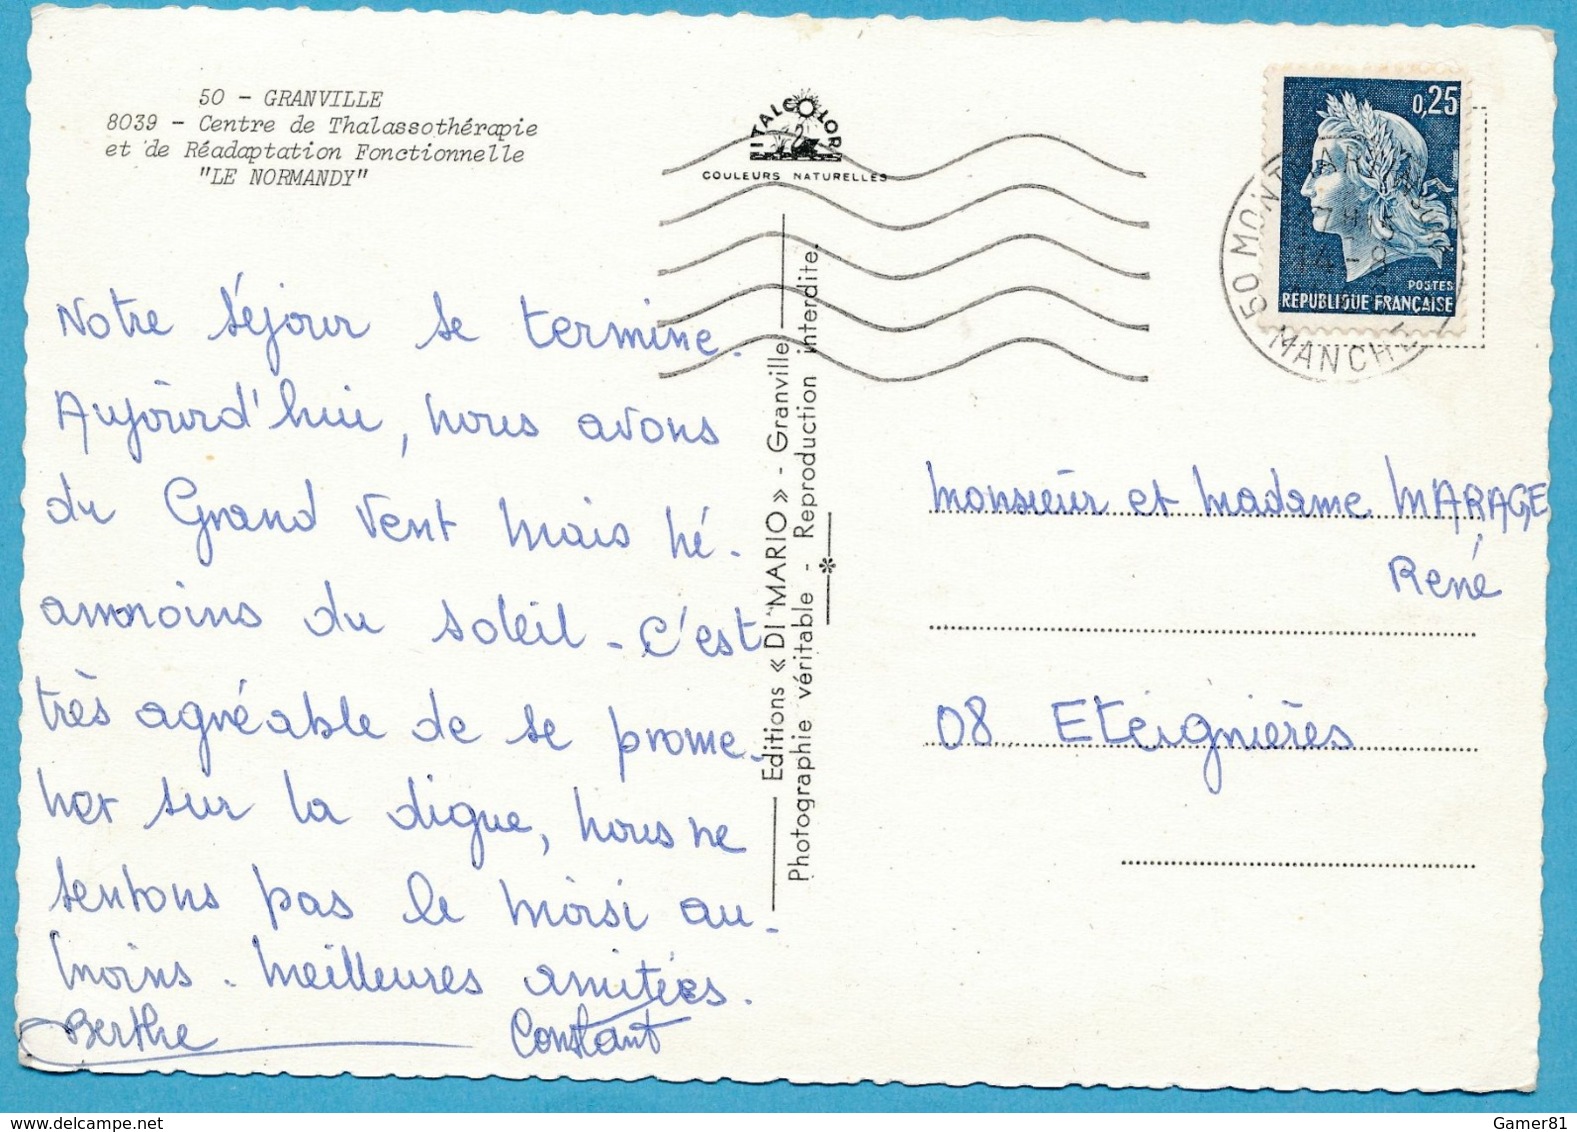 50 - GRANVILLE
8039 - Centre de Thalassothérapie
et de Réadaptation Fonctionnelle
"LE NORMANDY"
ITALCOLOR
COULEURS NATURELLES
0,25
POSTES
REPUBLIQUE FRANÇAISE
50 MONT
MANCHE
14 - 8
Notre séjour se termine.
Aujourd'hui, nous avons
du Grand Vent mais né-
anmoins du soleil - C'est
très agréable de se prome-
ner sur la digue, nous ne
sentons pas le moisi au-
moins. Meilleures amitiés.
Berthe Constant
Editions « DI MARIO » - Granville
Photographie véritable - Reproduction interdite.
Monsieur et Madame MARAGE
René
08 Eteignières
Gamer81